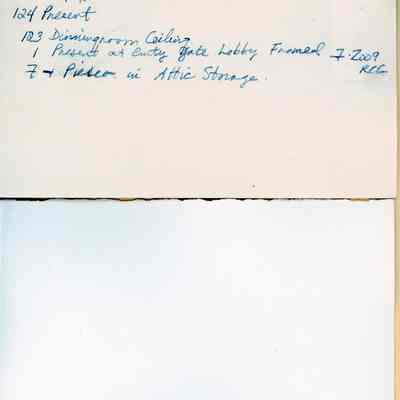 124 Present
123 Dinningroom Ceiling
1 Present at Entry Gate Lobby Framed 7-2009
7 + Pieces in Attic Storage. RCC